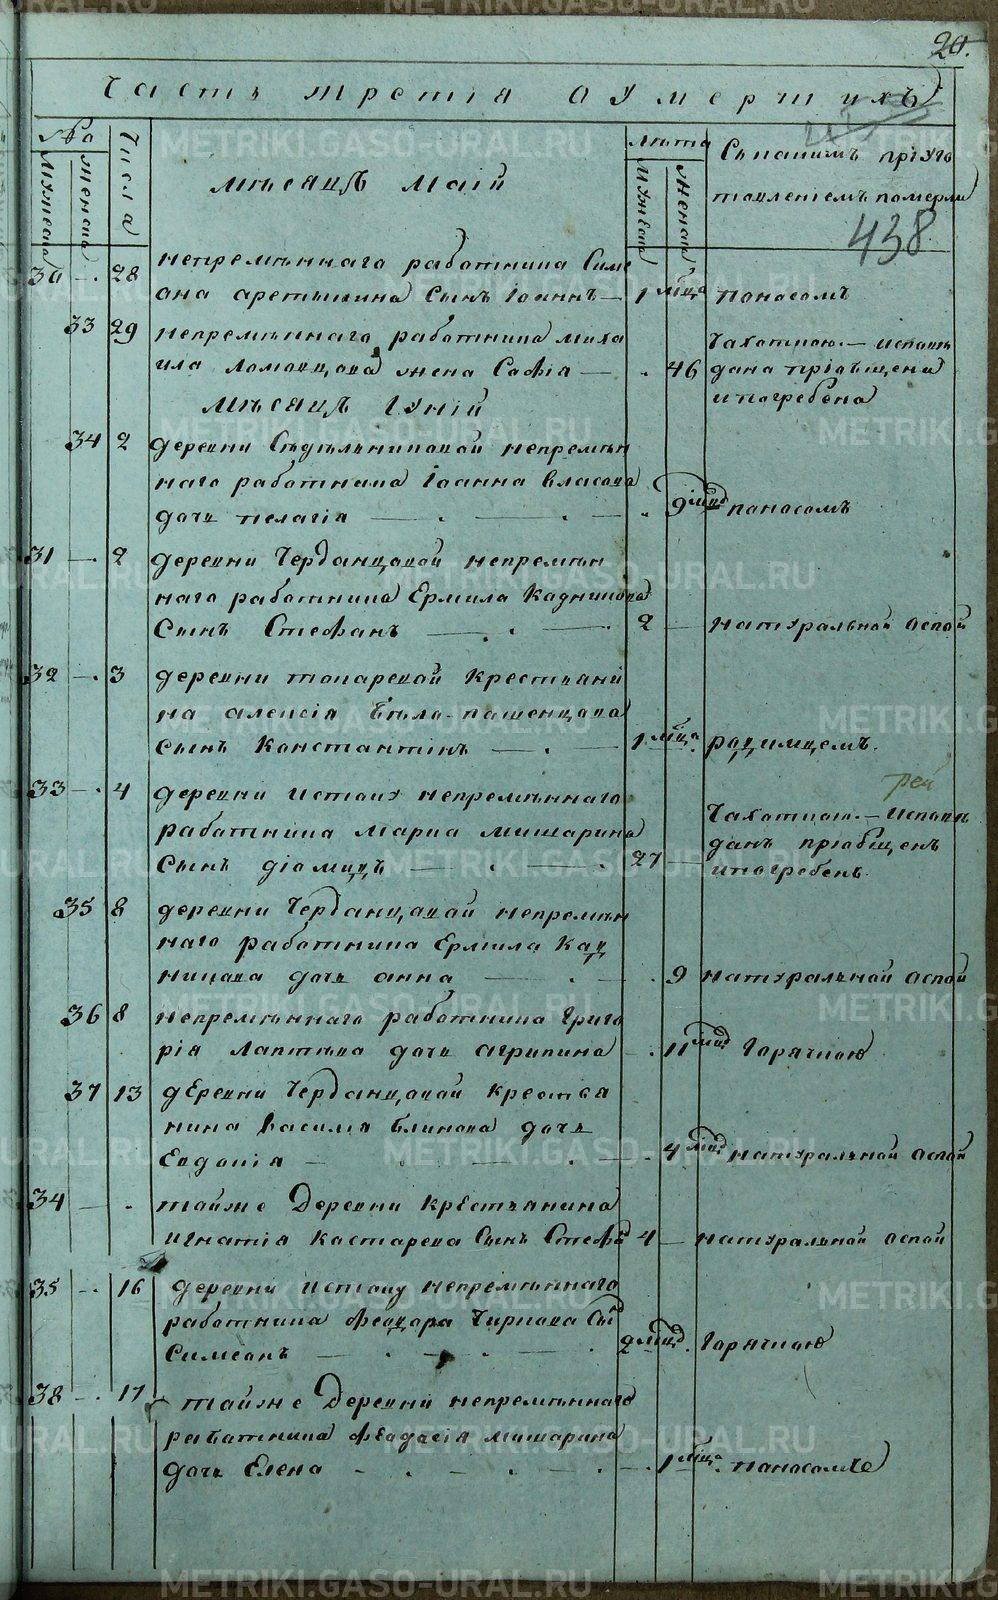 20.
Часть третія о умершихъ
№
Числа
мѣсяцъ маій
лѣта
Съ какимъ пріуго
товленіемъ померли
мужеска
женска
мужеска
женска
438
30 - 28 непремѣннаго работника Симе
она сынъ Іоаннъ — 1 мѣца поносомъ
33 29 непремѣннаго работника Миха
ила жена Софія — 46 Чахоткою. — исповѣ
дана пріобщена
и погребена
мѣсяцъ Іуній
34 2 деревни непремѣн
наго работника Іоанна Власова
дочь Пелагія — 9 мѣцъ поносомъ
31 - 2 деревни Черданцовой непремѣн
наго работника Ермила Кадникова
Сынъ Стефанъ — 2 — натуральной оспой
32 - 3 деревни Токаревой крестьяни
на Алексія Бѣлопашенцова
сынъ Константинъ — 1 мѣца родимцемъ.
33 - 4 деревни Истоку непремѣннаго
работника Марка Мишарина
Сынъ Діомидъ — 27 — Чахоткою. — исповѣ
данъ пріобщенъ
и погребенъ.
35 8 деревни Черданцовой непремѣн
наго работника Ермила Кад
никова дочь Анна — 9 натуральной оспой
36 8 непремѣннаго работника Григо
рія Лаптѣва дочь Агрипина — 11 мѣцъ Горячкою
37 13 деревни Черданцовой крестья
нина Василія Блинова дочь
Евдокія — 4 мѣцъ натуральной оспой
34 — - тойже Деревни крестьянина
Игнатія Костарева Сынъ Стефъ 4 — натуральной оспой
35 - 16 деревни Истоку непремѣннаго
работника Феодора Чиркова Сы
Симеонъ — 2 мѣцъ Горячкою
38 - 17 тойже Деревни непремѣннаго
работника Феодосія Мишарина
дочь Елена — 1 мѣца. поносомъ
METRIKI.GASO-URAL.RU